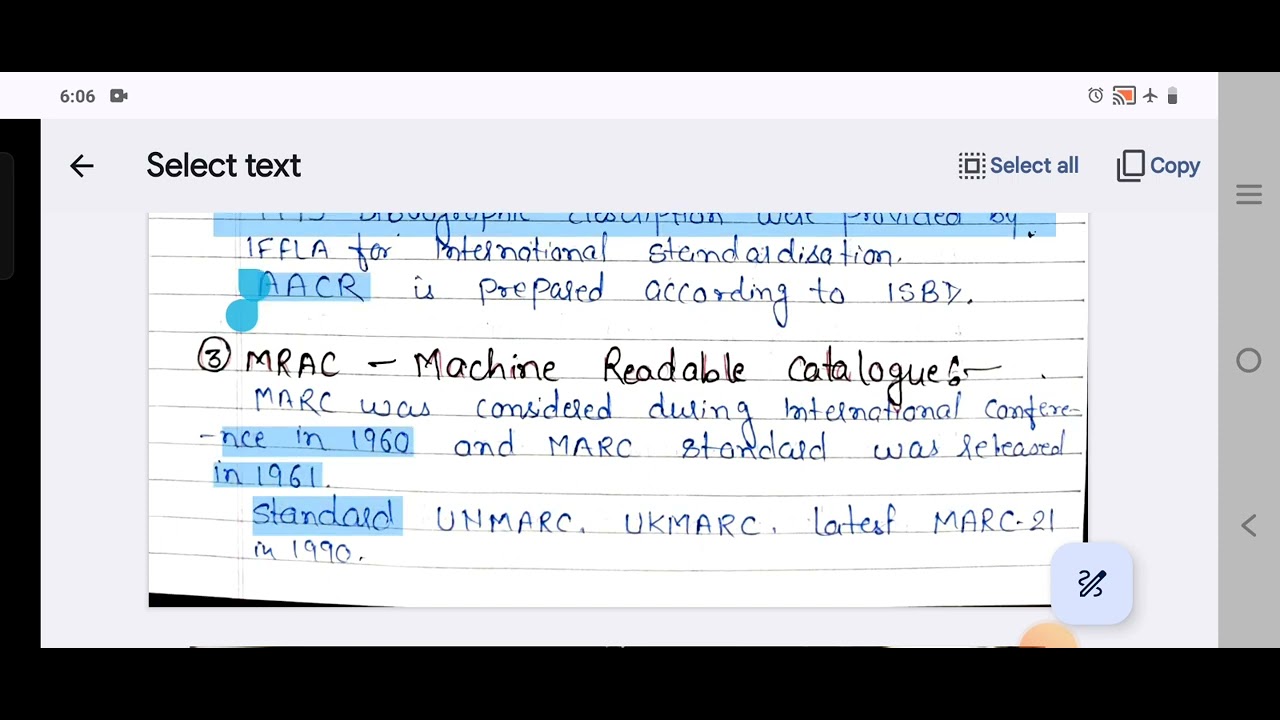 6:06
Select text
Select all
Copy
Bibliographic description was provided by
IFFLA for International standardisation.
AACR is prepared according to ISBD.
③ MRAC – Machine Readable Catalogues–
MARC was considered during International Confere-
-nce in 1960 and MARC standard was released
in 1961.
Standard UNMARC, UKMARC, latest MARC-21
in 1990.